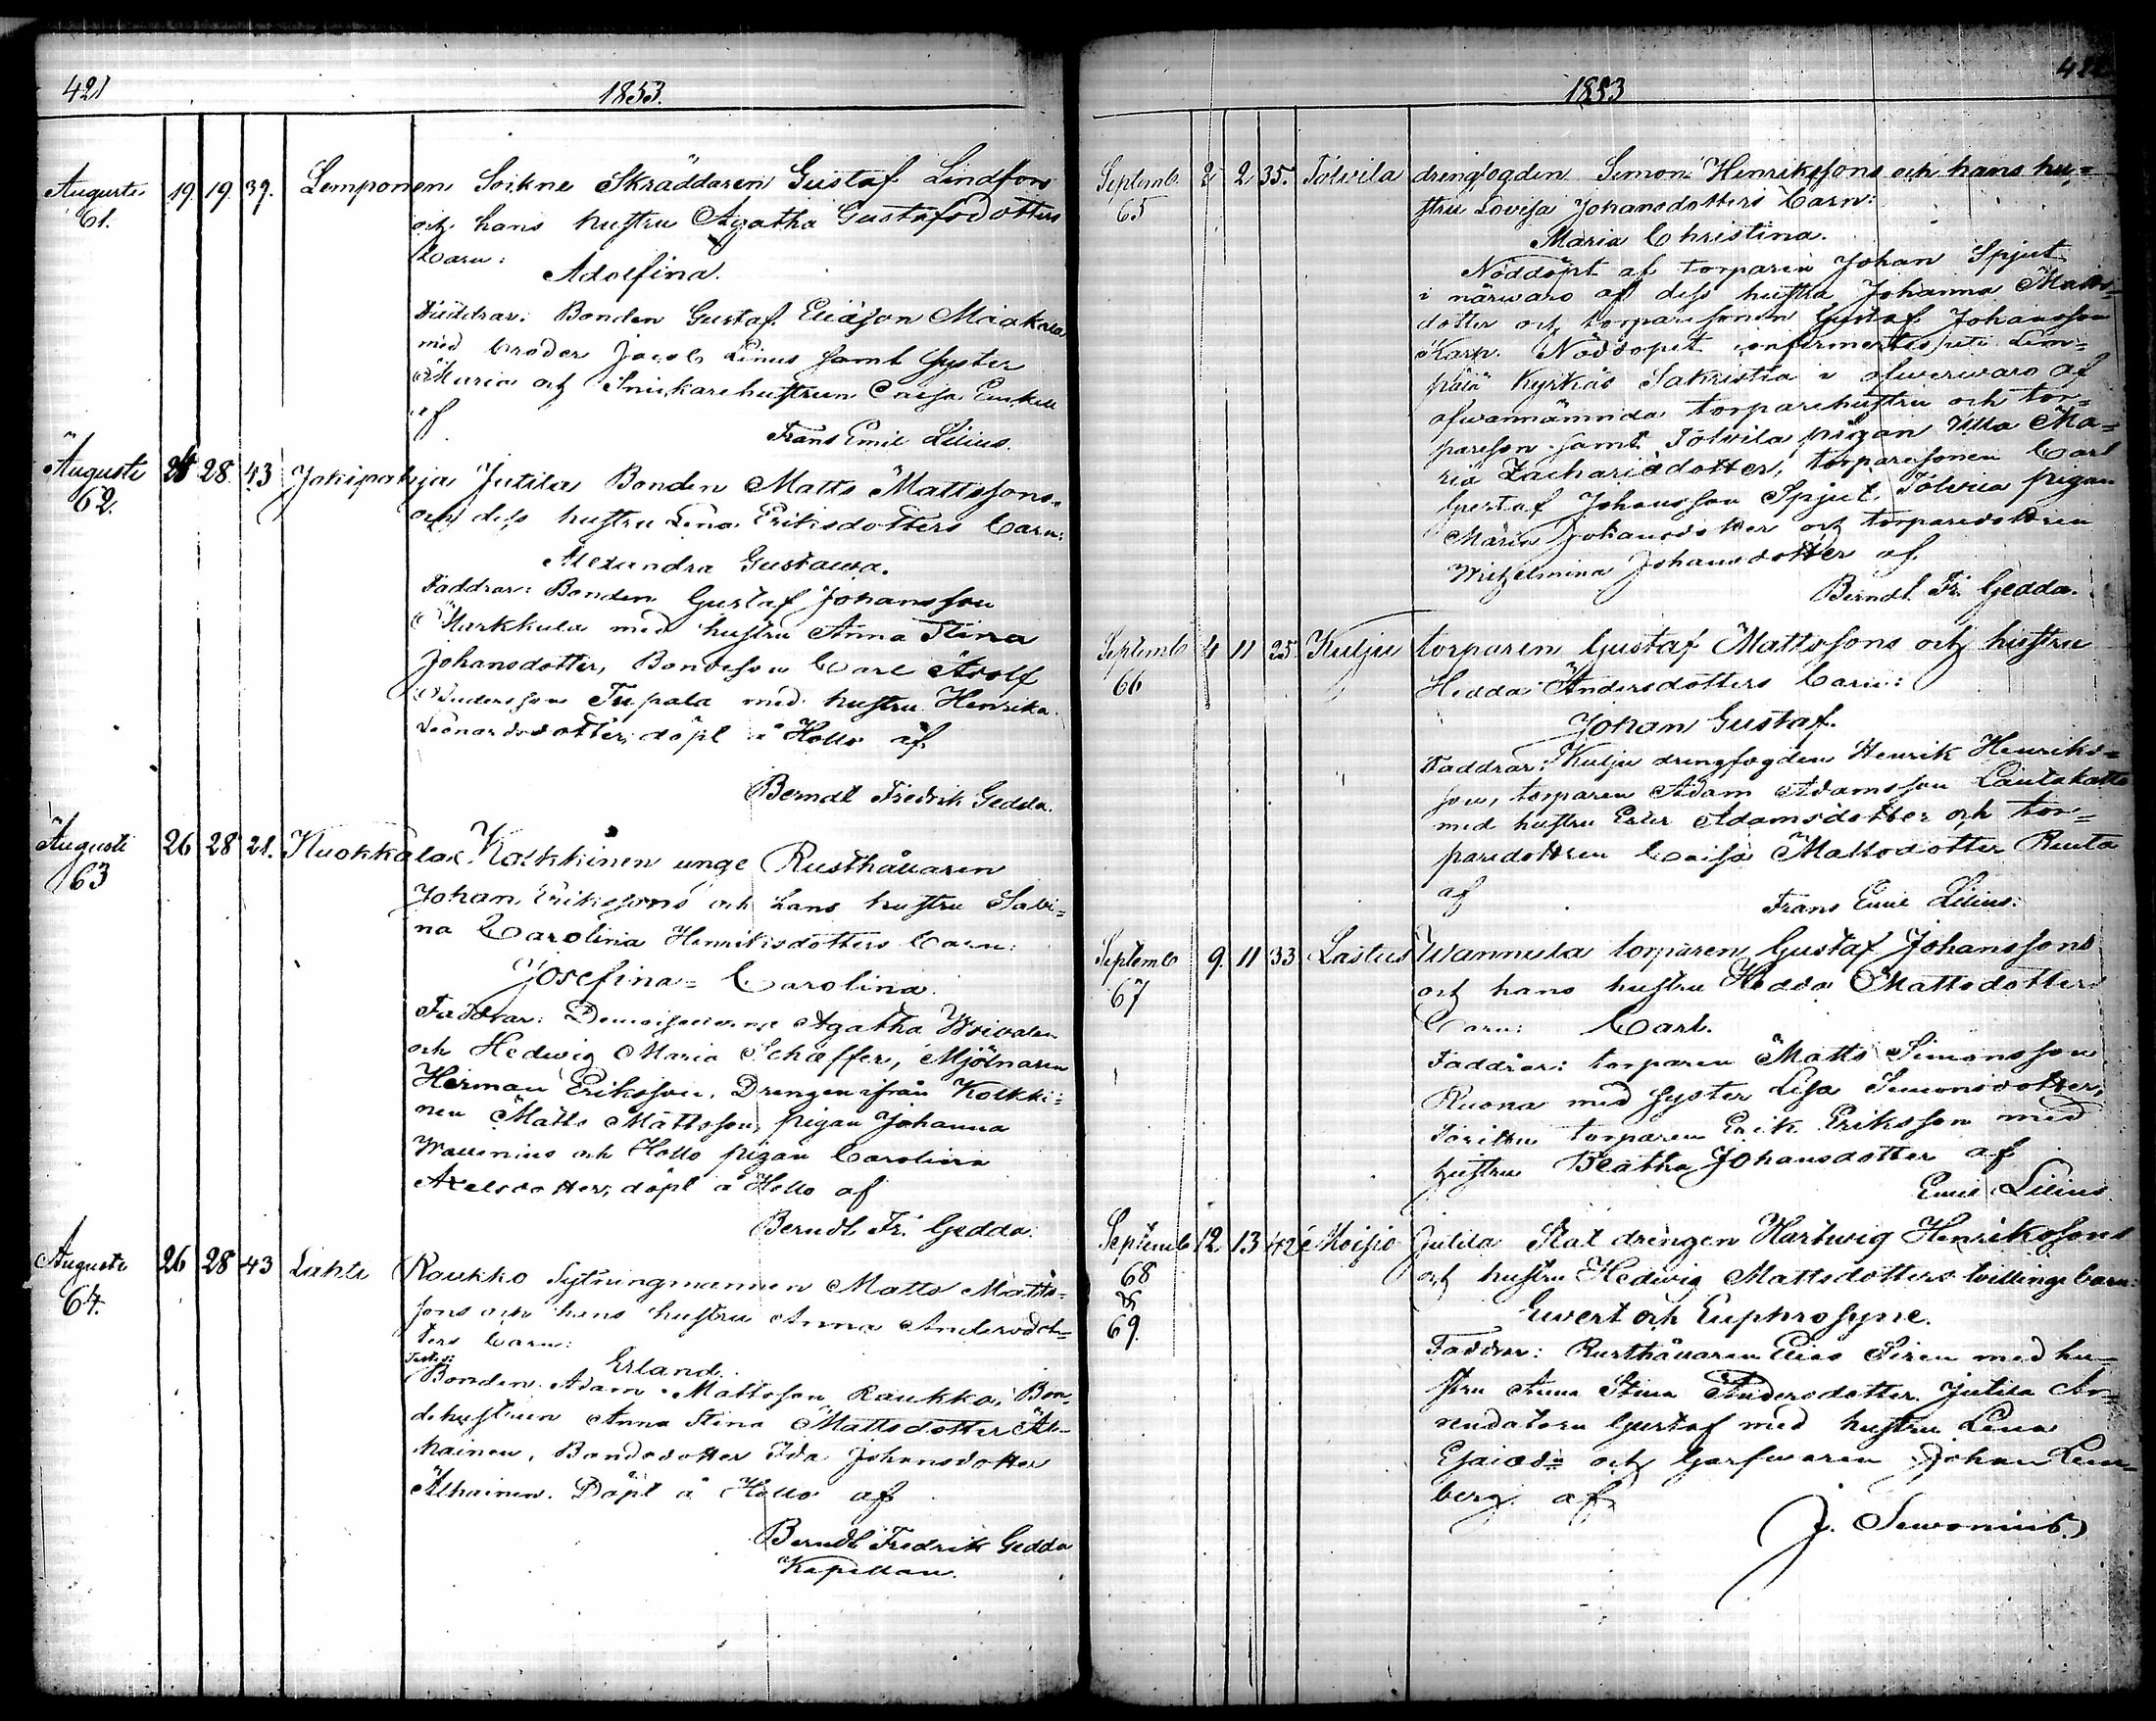 421
1853.
Augusti 19. 19. 39. Lemponen Soikne Skräddaren Gustaf Lindfors
61. och hans hustru Agatha Gustafsdotters
barn:
Adolfina.
Faddrar: Bonden Gustaf Eliasson Maakala
med broder Jacob Linus samt syster
Maria och Snickarehustrun Caisa
af
Frans Emil Lilius.
Augusti 28. 43 Jokipohja Jutila Bonden Matts Mattssons
62. och dess hustru Lena Eriksdotters barn:
Alexandra Gustawa.
Faddrar: Bonden Gustaf Johansson
Markkula med hustru Anna Stina
Johansdotter, Bondeson Carl Adolf
Andersson Tupala med hustru Henrika
Leonardsdotter, döpt å Hollo af
Berndt Fredrik Gedda.
Augusti 26 28 21. Kuokkala Kolkkinen unge Rusthållaren
63 Johan Erikssons och hans hustru Sabi=
na Carolina Henriksdotters barn:
Josefina= Carolina.
Faddrar: Agatha
och Hedwig Maria Schæffer, Mjölnaren
Herman Eriksson, Drengen ifrån Kolkki=
nen Matts Mattsson, pigan Johanna
Wallenius och Hollo pigan Carolina
Axelsdotter, döpt å Hollo af
Berndt Fr. Gedda.
Augusti 26 28 43 Lahti Roukko Sytningmannen Matts Matts=
64. sons och hans hustru Anna Andersdot=
ters barn:
Testes: Erland.
Bonden Adam Mattsson Raukko, Bon-
dehustrun Anna Stina Mattsdotter Al-
hainen, Bondedotter Ida Johansdotter
Alhainen. Döpt å Hollo af
Berndt Fredrik Gedda
Kapellan.
1853
Septemb. 2 2 35. Tolvila drengfogden Simon Henrikssons och hans hu=
65 stru Lovisa Johansdotters barn:
Maria Christina.
Nöddöpt af torparen Johan Spjut
i närwaro af dess hustru Johanna Matts=
dotter och torparesonen Gustaf Johansson
Karp. Nöddopet confirmertes uti Lem=
pälä Kyrkas Sakristia i öfwerwaro af
ofwannämnda torparehustru och tor=
pareson samt Tolvila pigan Ulla Ma=
ria Zachariedotter, torparesonen Carl
Gustaf Johansson Spjut, Tolvila pigan
Maria Johansdotter och torparedottren
Wilhelmina Johansdotter af
Berndt Fr. Gedda.
Septemb 4 11 25. Kulju torparen Gustaf Mattssons och hustru
66 Hedda Andersdotters barn:
Johan Gustaf.
Faddrar: Kulju drengfogden Henrik Henriks=
son, torparen Adam Adamsson Lautakatto
med hustru Ester Adamsdotter och tor=
paredottren Caisa Mattsdotter Renta
af
Frans Emil Lilius.
Septemb 9. 11 33 Lastus Wannula torparen Gustaf Johanssons
67 och hans hustru Hedda Mattsdotters
barn: Carl.
Faddrar: torparen Matts Simonsson
Ruona med syster Lisa Simonsdotter,
torparen Erik Eriksson med
hustru Beatha Johansdotter af
Emil Lilius.
Septemb 12 13 42 Moisio Jutila Stat drengen Hartwig Henrikssons
68 och hustru Hedwig Mattsdotters twillinge barn:
&
69. Ewert och Euphrosyne.
Faddrar: Rusthållaren Elias Siren med hu=
stru Anna Stina Andersdotter. Jutila Ar=
rendatorn Gustaf med hustru Lena
Esaiæd= och Garfwaren Johan Lem=
berg af
J. Sewonius.